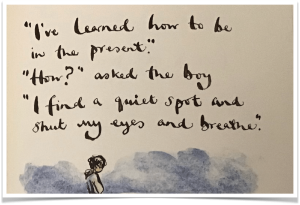 "I've learned how to be
in the present."
"How?" asked the boy
"I find a quiet spot and
shut my eyes and breathe".